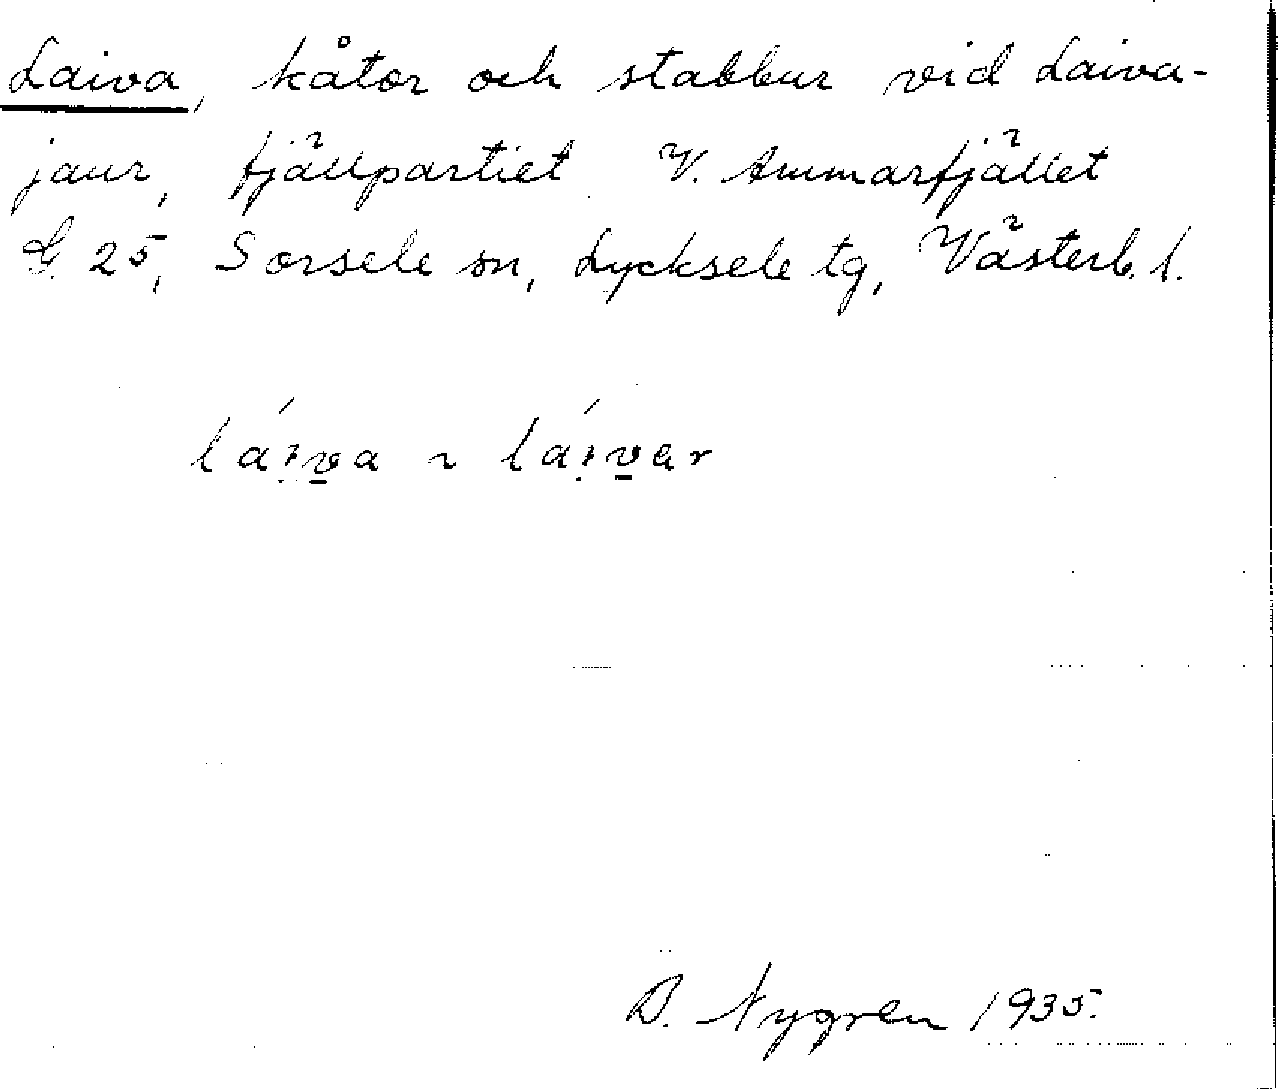 Laiva, kåtor och stabbur vid Laiva-
jaur, fjällpartiet V. Ammarfjället
G. 25, Sorsele sn, Lycksele tg, Västerb. l.
láiva ~ láivar
B. Nygren 1935.